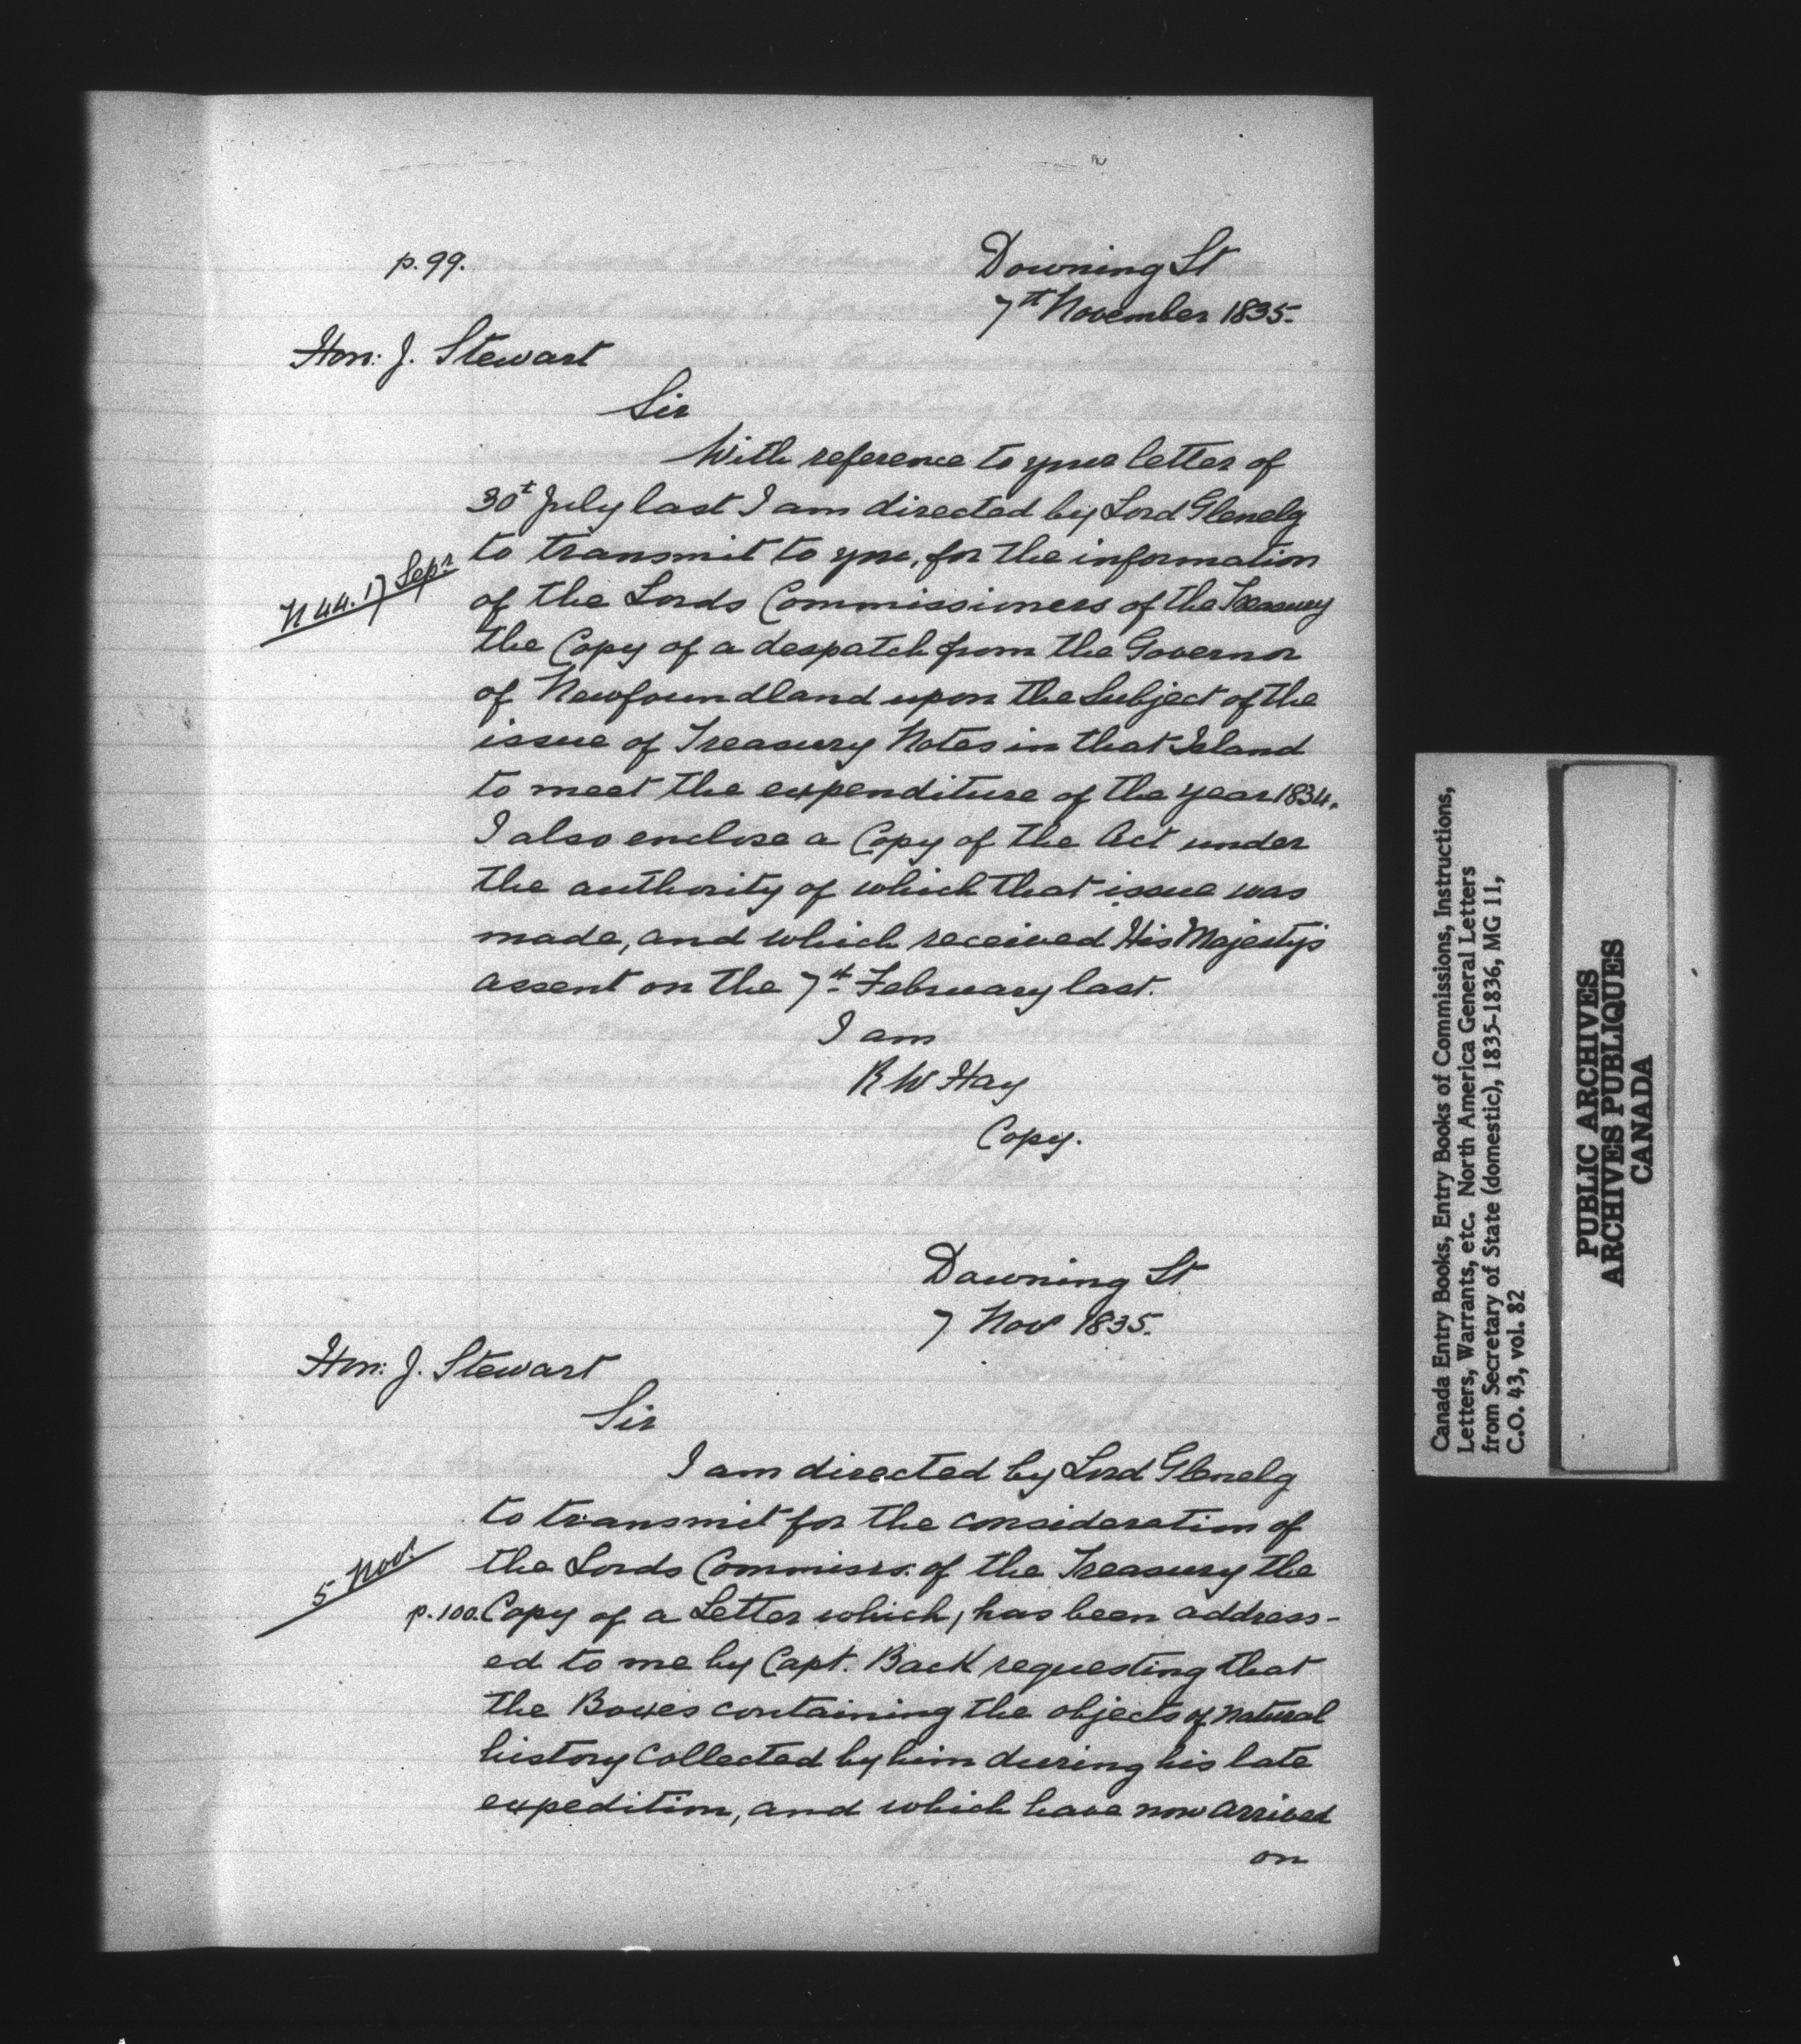 p.99.
Downing St
7th November 1835.
Hon: J. Stewart
Sir
With reference to your letter of
30t July last I am directed by Lord Glenelg
to transmit to you, for the information
N 44. 17 Sepr
of the Lords Commissioners of the Treasury
the Copy of a despatch from the Governor
of Newfoundland upon the Subject of the
issue of Treasury Notes in that Island
to meet the expenditure of the year 1834.
I also enclose a Copy of the Act under
the authority of which that issue was
made, and which received His Majesty's
assent on the 7th February last.
I am
R W Hay
Copy.
Downing St
7 Nov 1835.
Hon: J. Stewart
Sir
I am directed by Lord Glenelg
to transmit for the consideration of
the Lords Commissrs. of the Treasury the
5 Nov.
p.100. Copy of a Letter which, has been address-
ed to me by Capt. Back requesting that
the Boxes containing the objects of natural
history collected by him during his late
expedition, and which have now arrived
on
Canada Entry Books, Entry Books of Commissions, Instructions,
Letters, Warrants, etc. North America General Letters
from Secretary of State (domestic), 1835-1836, MG 11,
C.O. 43, vol. 82
PUBLIC ARCHIVES
ARCHIVES PUBLIQUES
CANADA